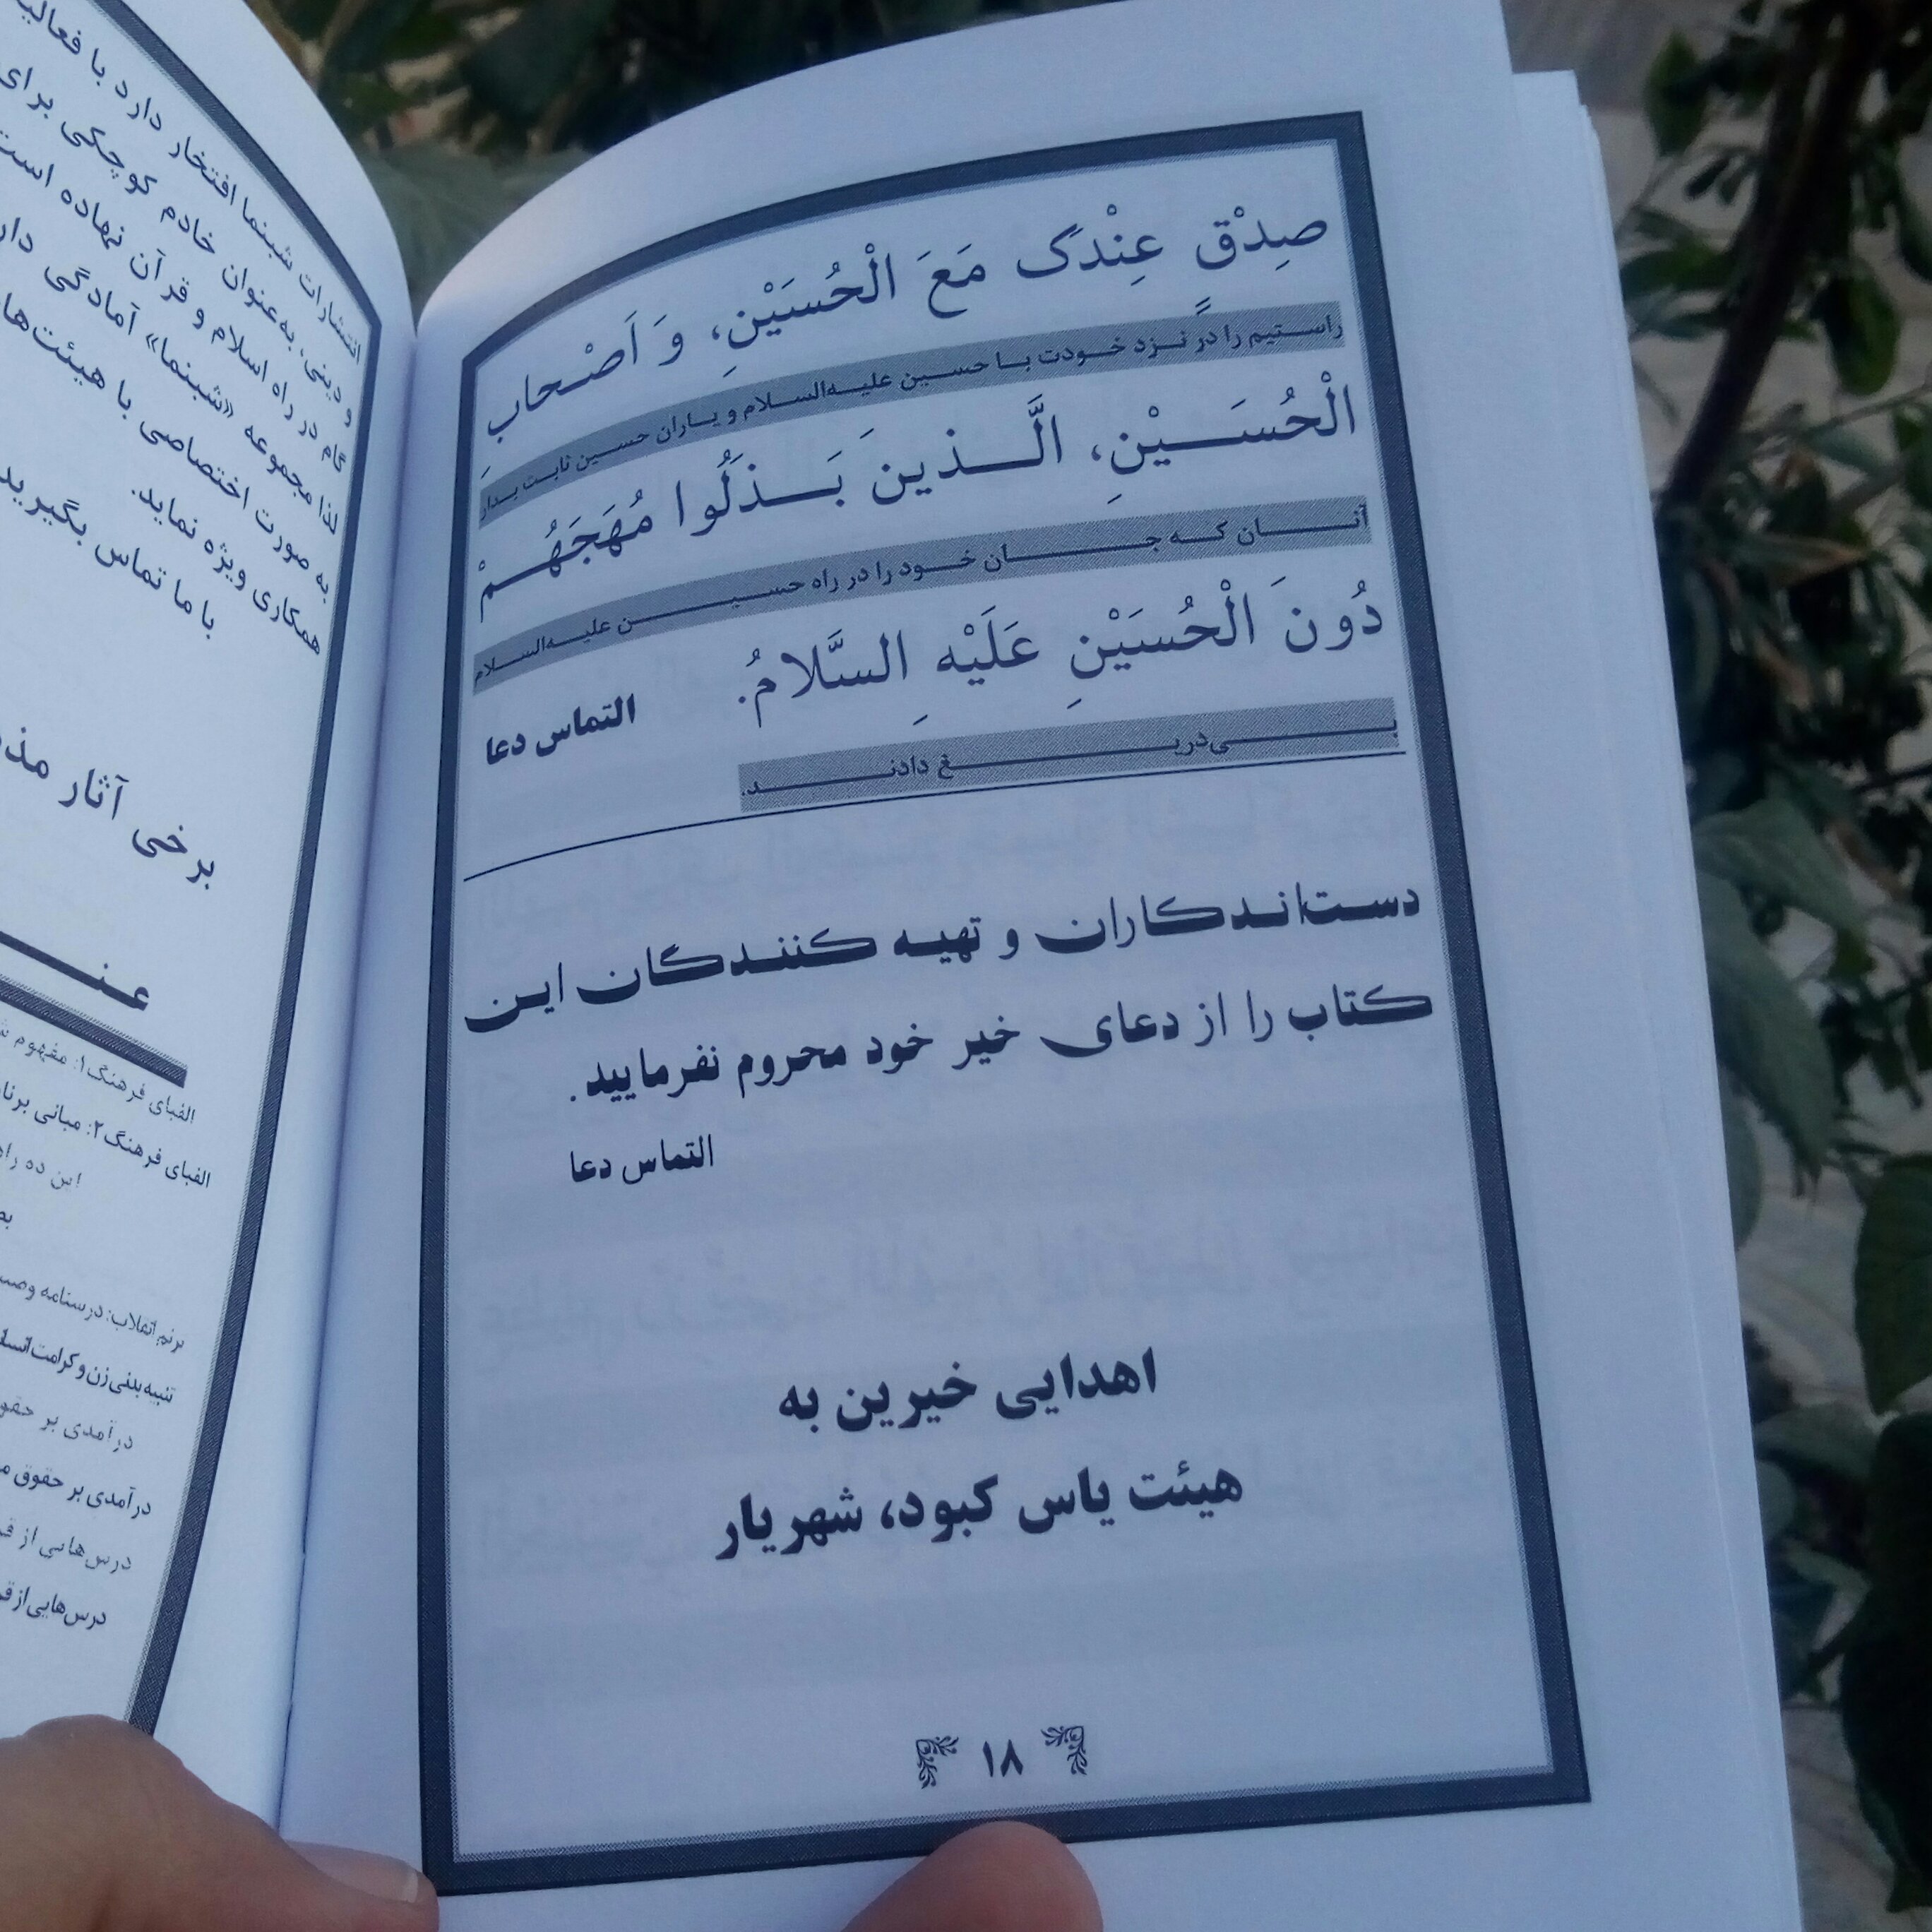 صِدْقٍ عِنْدَکَ مَعَ الْحُسَیْنِ، وَ اَصْحابِ
راستیم را در نزد خودت با حسین علیه‌السلام و یاران حسین ثابت بدار
الْحُسَیْنِ، الَّذینَ بَذَلُوا مُهَجَهُمْ
آنان که جان خود را در راه حسین علیه‌السلام
دُونَ الْحُسَیْنِ عَلَیْهِ السَّلامُ.
التماس دعا
بی‌دریغ دادند.
دست‌اندکاران و تهیه کنندگان این
کتاب را از دعای خیر خود محروم نفرمایید.
التماس دعا
اهدایی خیرین به
هیئت یاس کبود، شهریار
۱۸
انتشارات شبنما افتخار دارد با
و دینی، به‌عنوان خادم کوچکی برای
گام در راه اسلام و قرآن نهاده است
لذا مجموعه «شبنما» آمادگی
به صورت اختصاصی با
همکاری ویژه نماید.
با ما تماس بگیرید
برخی آثار
الفبای فرهنگ۱: مفهوم
الفبای فرهنگ۲: مبانی
این ده
درسنامه
تنبیه بدنی زن و کرامت
درآمدی بر
درآمدی بر حقوق
درس‌هایی از
درس‌هایی از